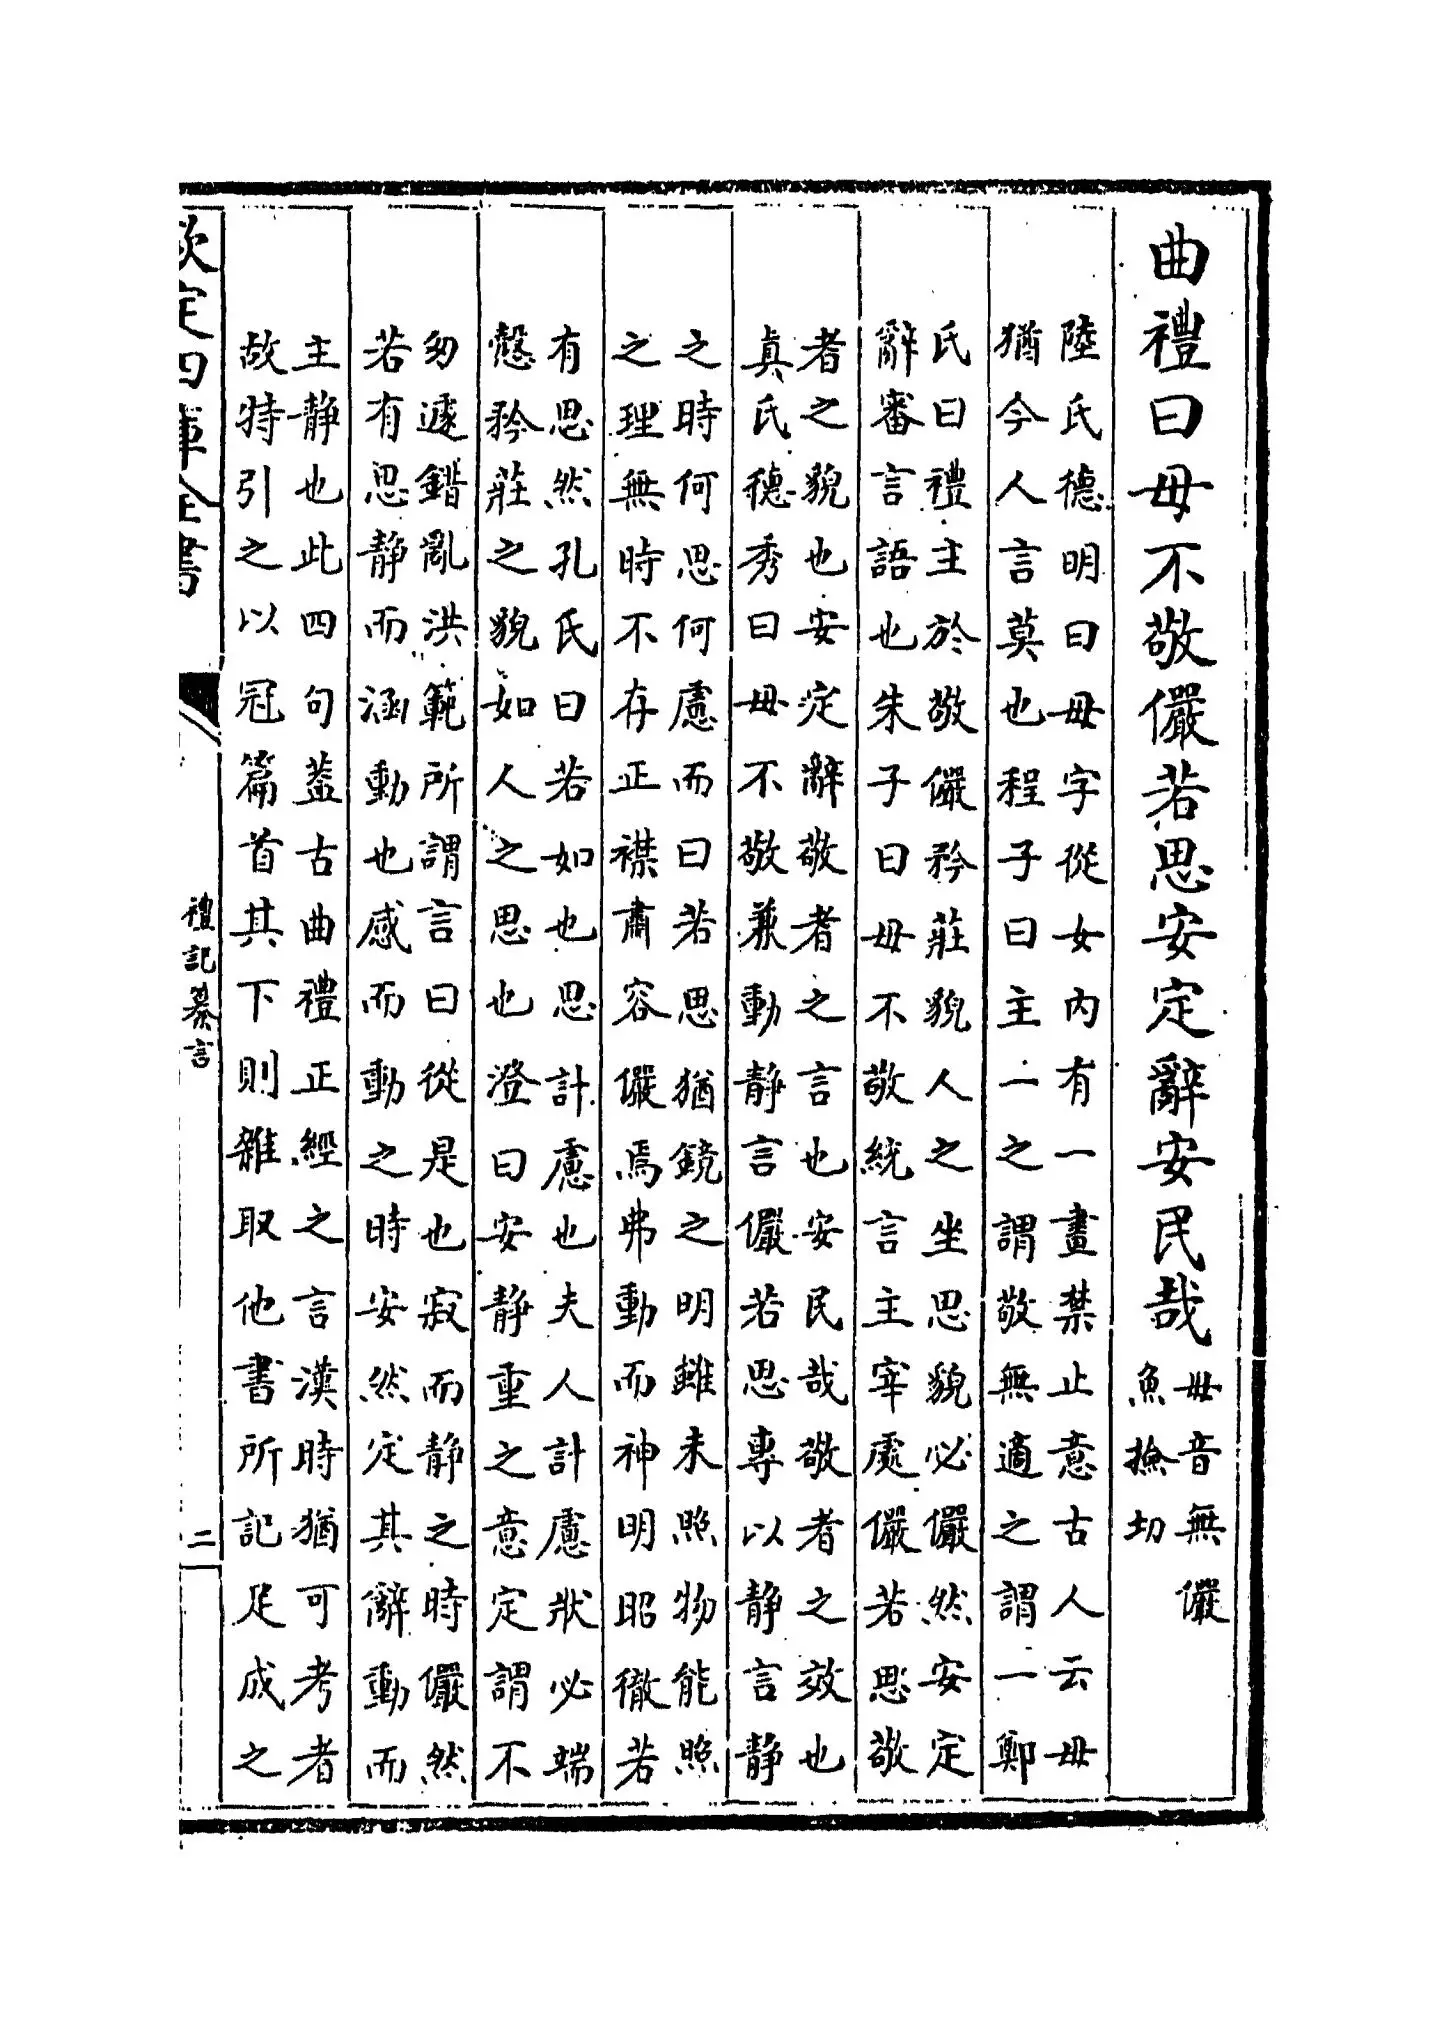 曲禮曰毋不敬儼若思安定辭安民哉
毋音無儼
魚撿切
陸氏德明曰毋字從女內有一畫禁止意古人云毋
猶今人言莫也程子曰主一之謂敬無適之謂一鄭
氏曰禮主於敬儼矜莊貌人之坐思貌必儼然安定
辭審言語也朱子曰毋不敬統言主宰處儼若思敬
者之貌也安定辭敬者之言也安民哉敬者之效也
真氏德秀曰毋不敬兼動静言儼若思專以静言静
之時何思何慮而曰若思猶鏡之明雖未照物能照
之理無時不存正襟肅容儼焉弗動而神明昭徹若
有思然孔氏曰若如也思計慮也夫人計慮狀必端
慤矜莊之貌如人之思也澄曰安静重之意定謂不
匆遽錯亂洪範所謂言曰從是也寂而静之時儼然
若有思静而涵動也感而動之時安然定其辭動而
主静也此四句葢古曲禮正經之言漢時猶可考者
故特引之以冠篇首其下則雜取他書所記足成之
欽定四庫全書
禮記纂言
二